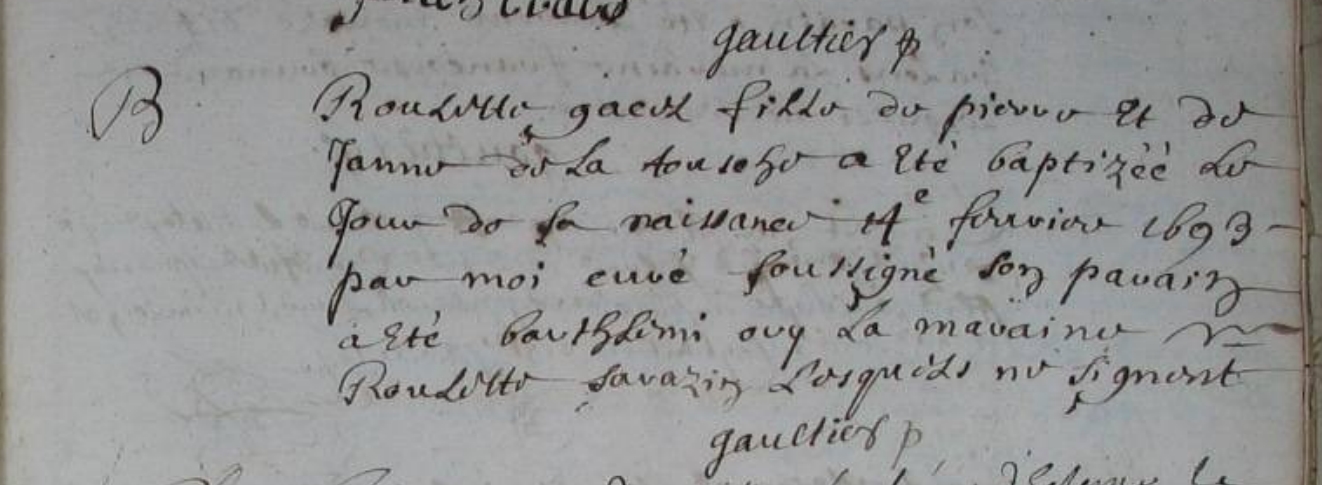 gaultier p
B
Roulette gacel fille de pierre Et de
Janne de La tousche a Eté baptizéé Le
Jour de sa naissance 14e fevrier 1693
par moi curé soussigné son parain
a Eté barthlemi ory La maraine
Roulette sarazin Lesquels ne signent
gaultier p